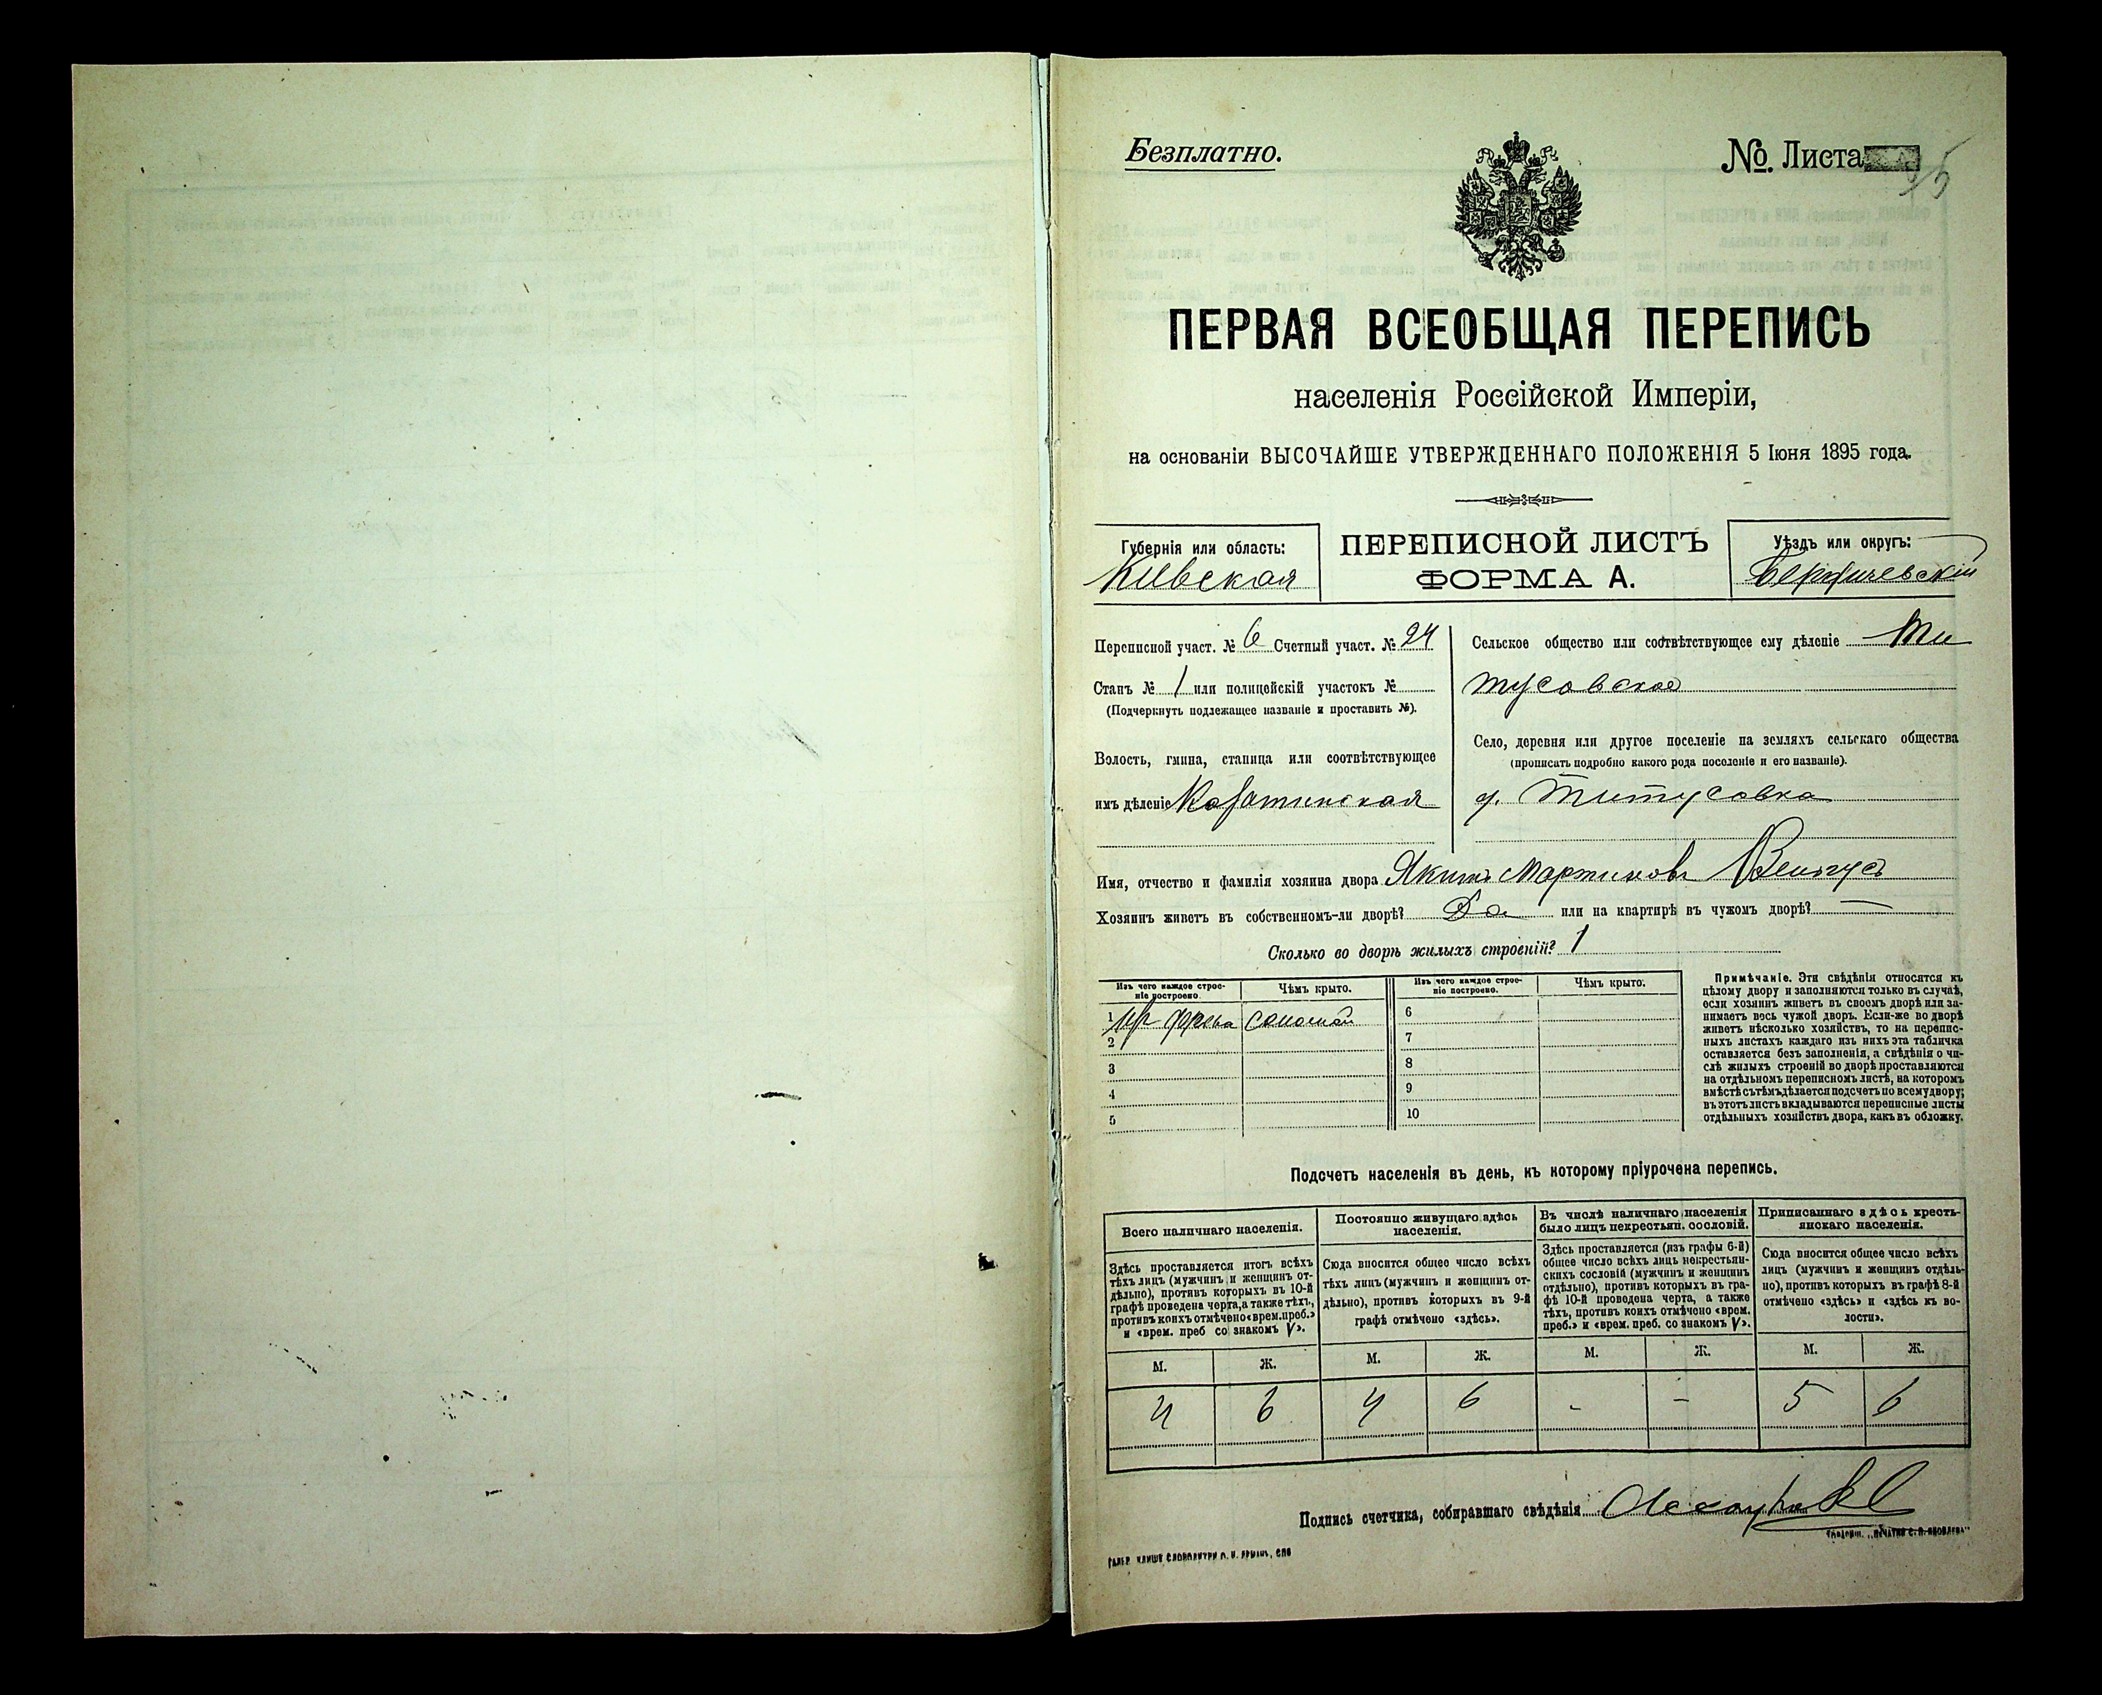 Безплатно.
№ Листа
ПЕРВАЯ ВСЕОБЩАЯ ПЕРЕПИСЬ
населенія Россійской Имперіи,
на основаніи ВЫСОЧАЙШЕ УТВЕРЖДЕННАГО ПОЛОЖЕНІЯ 5 Іюня 1895 года.
Губернія или область:
Кіевская
ПЕРЕПИСНОЙ ЛИСТЪ
ФОРМА А.
Уѣздъ или округъ:
Бердичевскій
Переписной участ. № 6 Счетный участ. № 24
Станъ № 1 или полицейскій участокъ №
(Подчеркнуть подлежащее названіе и проставить №).
Волость, гмина, станица или соотвѣтствующее
имъ дѣленіе
Сельское общество или соотвѣтствующее ему дѣленіе Ти
тусовское
Село, деревня или другое поселеніе на земляхъ сельскаго общества
(прописать подробно какого рода поселеніе и его названіе).
д. Титусовка
Имя, отчество и фамилія хозяина двора Якимъ Мартиновъ
Хозяинъ живетъ въ собственномъ-ли дворѣ? Да или на квартирѣ въ чужомъ дворѣ? —
Сколько во дворѣ жилыхъ строеній? 1
Изъ чего каждое строе-
ніе построено.
Чѣмъ крыто.
1 дерева соломой
2
3
4
5
Изъ чего каждое строе-
ніе построено.
Чѣмъ крыто.
6
7
8
9
10
Примѣчаніе. Эти свѣдѣнія относятся къ
цѣлому двору и заполняются только въ случаѣ,
если хозяинъ живетъ въ своемъ дворѣ или за-
нимаетъ весь чужой дворъ. Если-же во дворѣ
живетъ нѣсколько хозяйствъ, то на перепис-
ныхъ листахъ каждаго изъ нихъ эта табличка
оставляется безъ заполненія, а свѣдѣнія о чи-
слѣ жилыхъ строеній во дворѣ проставляются
на отдѣльномъ переписномъ листѣ, на которомъ
вмѣстѣ съ тѣмъ дѣлается подсчетъ по всему двору;
въ этотъ листъ вкладываются переписные листы
отдѣльныхъ хозяйствъ двора, какъ въ обложку.
Подсчетъ населенія въ день, къ которому пріурочена перепись.
Всего наличнаго населенія.
Здѣсь проставляется итогъ всѣхъ
тѣхъ лицъ (мужчинъ и женщинъ от-
дѣльно), противъ которыхъ въ 10-й
графѣ проведена черта, а также тѣхъ,
противъ коихъ отмѣчено «врем. преб.»
и «врем. преб со знакомъ V».
М. Ж.
4 6
Постоянно живущаго здѣсь
населенія.
Сюда вносится общее число всѣхъ
тѣхъ лицъ (мужчинъ и женщинъ от-
дѣльно), противъ которыхъ въ 9-й
графѣ отмѣчено «здѣсь».
М. Ж.
4 6
Въ числѣ наличнаго населенія
было лицъ некрестьян. сословій.
Здѣсь проставляется (изъ графы 6-й)
общее число всѣхъ лицъ некрестьян-
скихъ сословій (мужчинъ и женщинъ
отдѣльно), противъ которыхъ въ гра-
фѣ 10-й проведена черта, а также
тѣхъ, противъ коихъ отмѣчено «врем.
преб.» и «врем. преб. со знакомъ V».
М. Ж.
- -
Приписаннаго здѣсь кресть-
янскаго населенія.
Сюда вносится общее число всѣхъ
лицъ (мужчинъ и женщинъ отдѣль-
но), противъ которыхъ въ графѣ 8-й
отмѣчено «здѣсь» и «здѣсь къ во-
лости».
М. Ж.
5 6
Подпись счетчика, собиравшаго свѣдѣнія